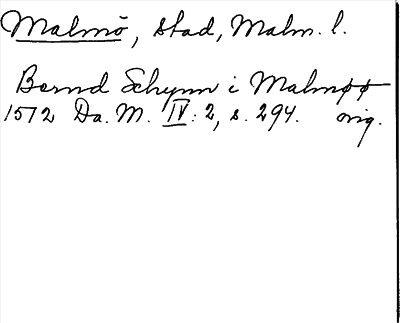 Malmö, stad, Malm. l.
Bernd Schynn i Malmøø
1572 Da. M. IV: 2, s. 294. orig.